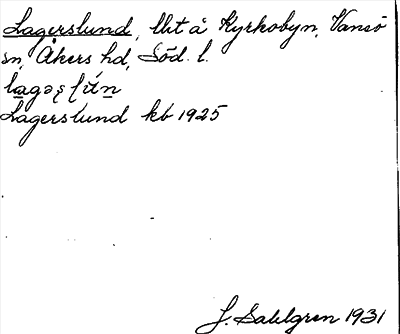 Lagerslund, lht å Kyrkobyn, Vansö
sn, Åkers hd, Söd. l.
Lagerslund kb 1925
J. Sahlgren 1931